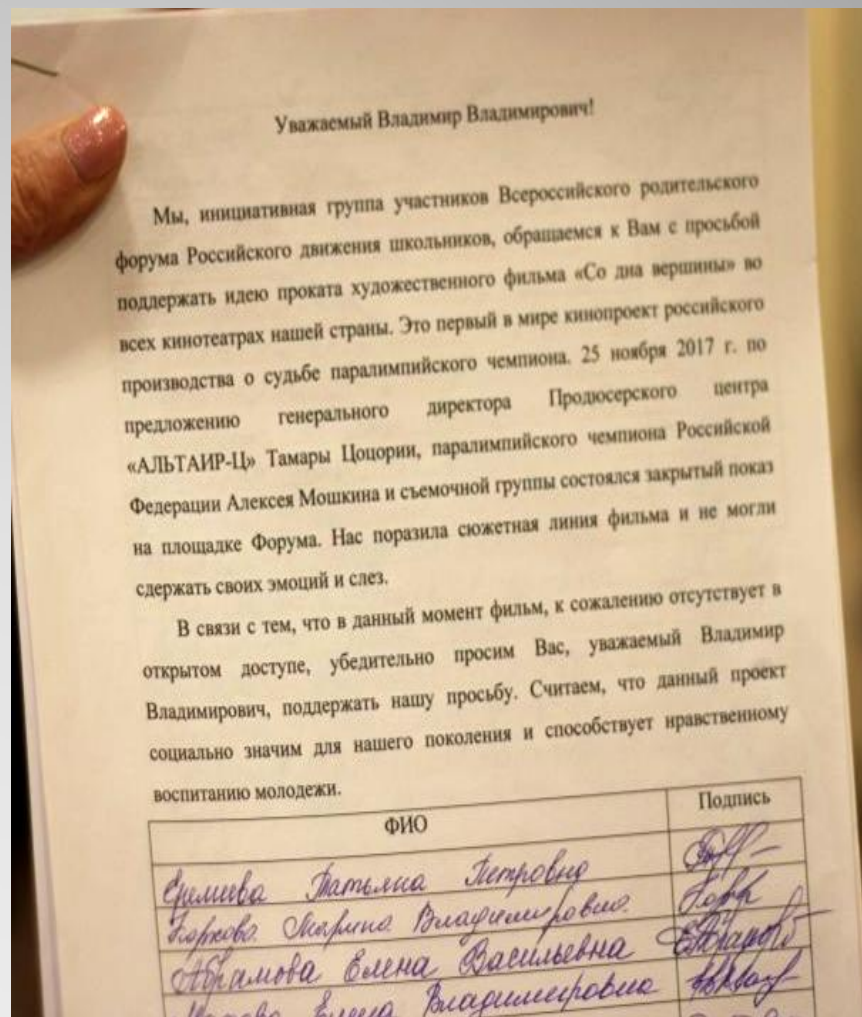 Уважаемый Владимир Владимирович!
Мы, инициативная группа участников Всероссийского родительского
форума Российского движения школьников, обращаемся к Вам с просьбой
поддержать идею проката художественного фильма «Со дна вершины» во
всех кинотеатрах нашей страны. Это первый в мире кинопроект российского
производства о судьбе паралимпийского чемпиона. 25 ноября 2017 г. по
предложению генерального директора Продюсерского центра
«АЛЬТАИР-Ц» Тамары Цоцории, паралимпийского чемпиона Российской
Федерации Алексея Мошкина и съемочной группы состоялся закрытый показ
на площадке Форума. Нас поразила сюжетная линия фильма и не могли
сдержать своих эмоций и слез.
В связи с тем, что в данный момент фильм, к сожалению отсутствует в
открытом доступе, убедительно просим Вас, уважаемый Владимир
Владимирович, поддержать нашу просьбу. Считаем, что данный проект
социально значим для нашего поколения и способствует нравственному
воспитанию молодежи.
ФИО Подпись
Татьяна Петровна
Марина Владимировна
Абрамова Елена Васильевна
Елена Владимировна